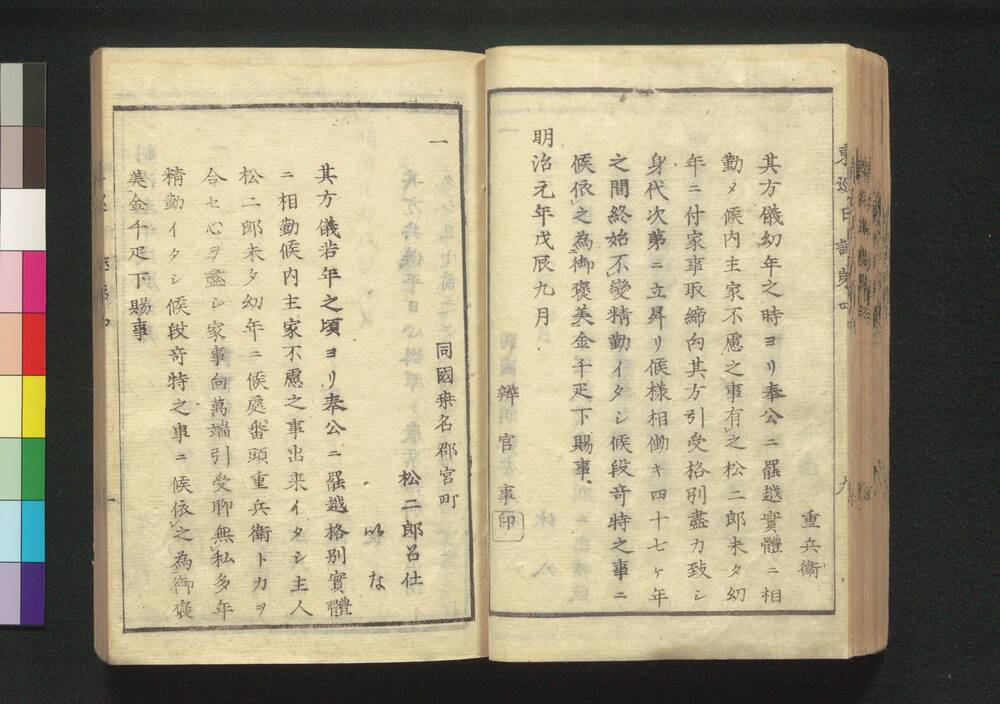 東巡日誌第四
九
重兵衛
其方儀幼年之時ヨリ奉公ニ罷越實體ニ相
勤メ候内主家不慮之事有之松二郎未タ幻
年ニ付家事取締向其方引受格別盡力致シ
身代次第ニ立昇リ候様相働キ四十七ヶ年
之間終始不變精勤イタシ候段奇特之事ニ
候依之為御褒美金千疋下賜事
明治元年戊辰九月
辨官事印
一
同國桒名郡宮町
松二郎召仕
いな
其方儀若年之頃ヨリ奉公ニ罷越格別實體
ニ相勤候内主家不慮之事出来イタシ主人
松二郎未タ幼年ニ候處畨頭重兵衛ト力ヲ
合セ心ヲ盡シ家事向萬端引受聊無私多年
精勤イタシ候段奇特之事ニ候依之為御褒
美金千疋下賜事